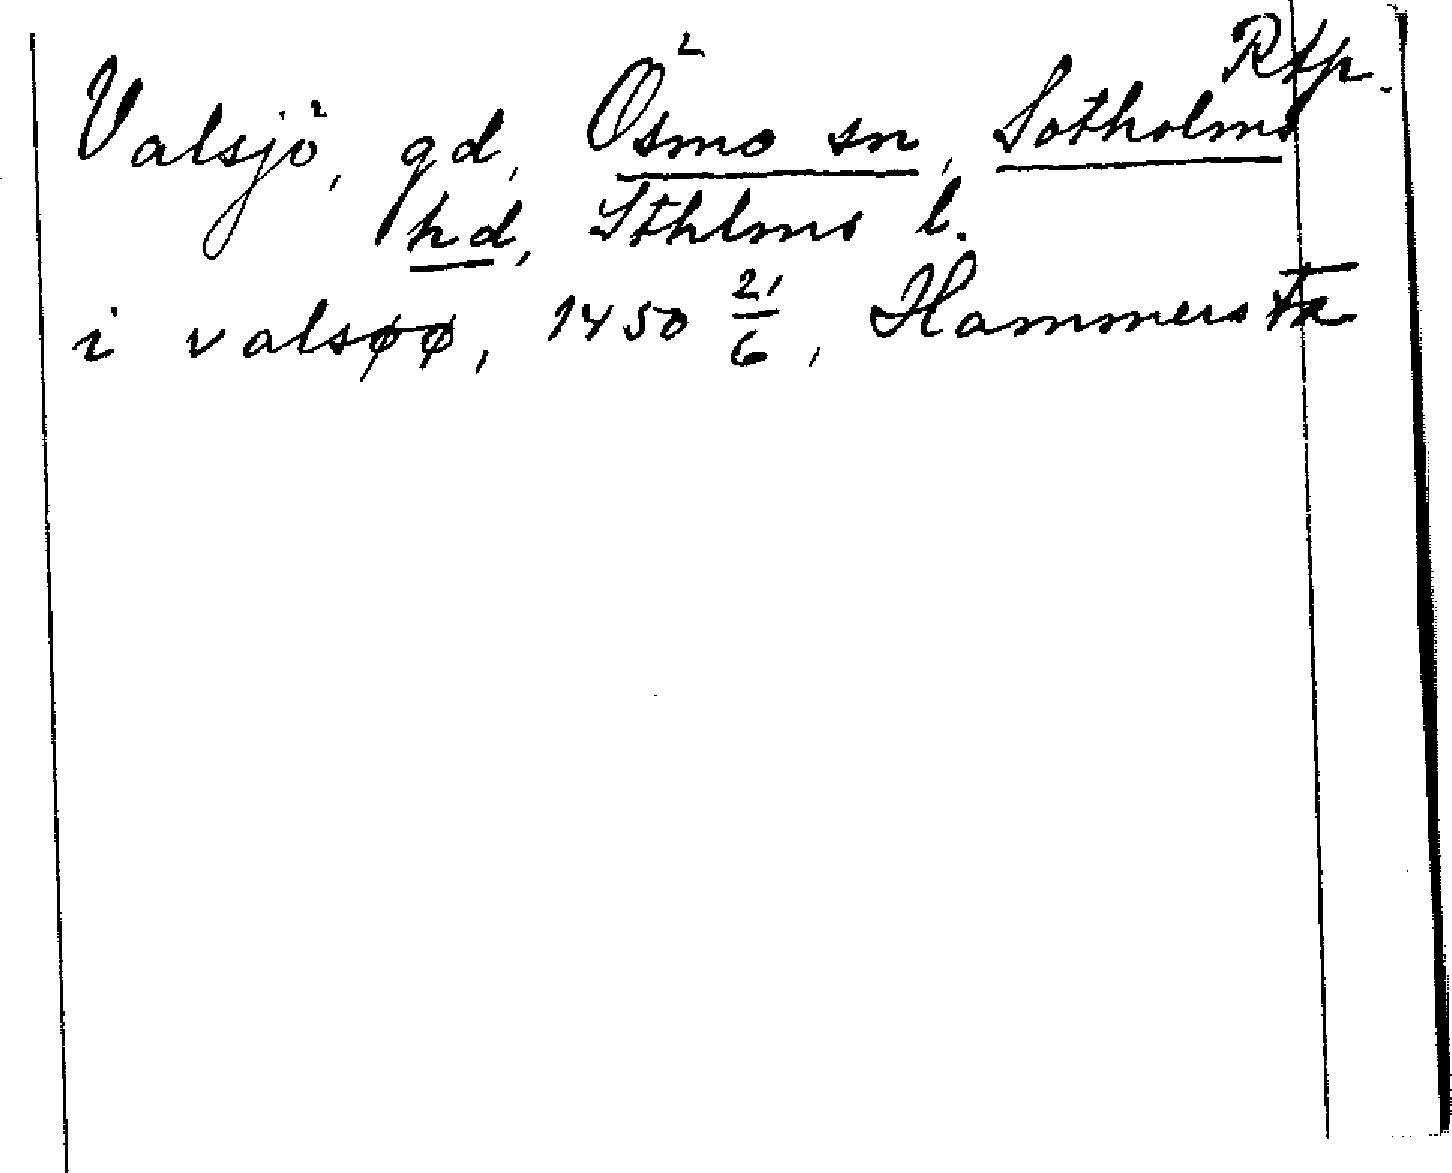 Rtp.
Valsjö, gd, Ösmo sn, Sotholms
hd, Sthlms l.
i valsøø, 1450 21/6, Hammersta